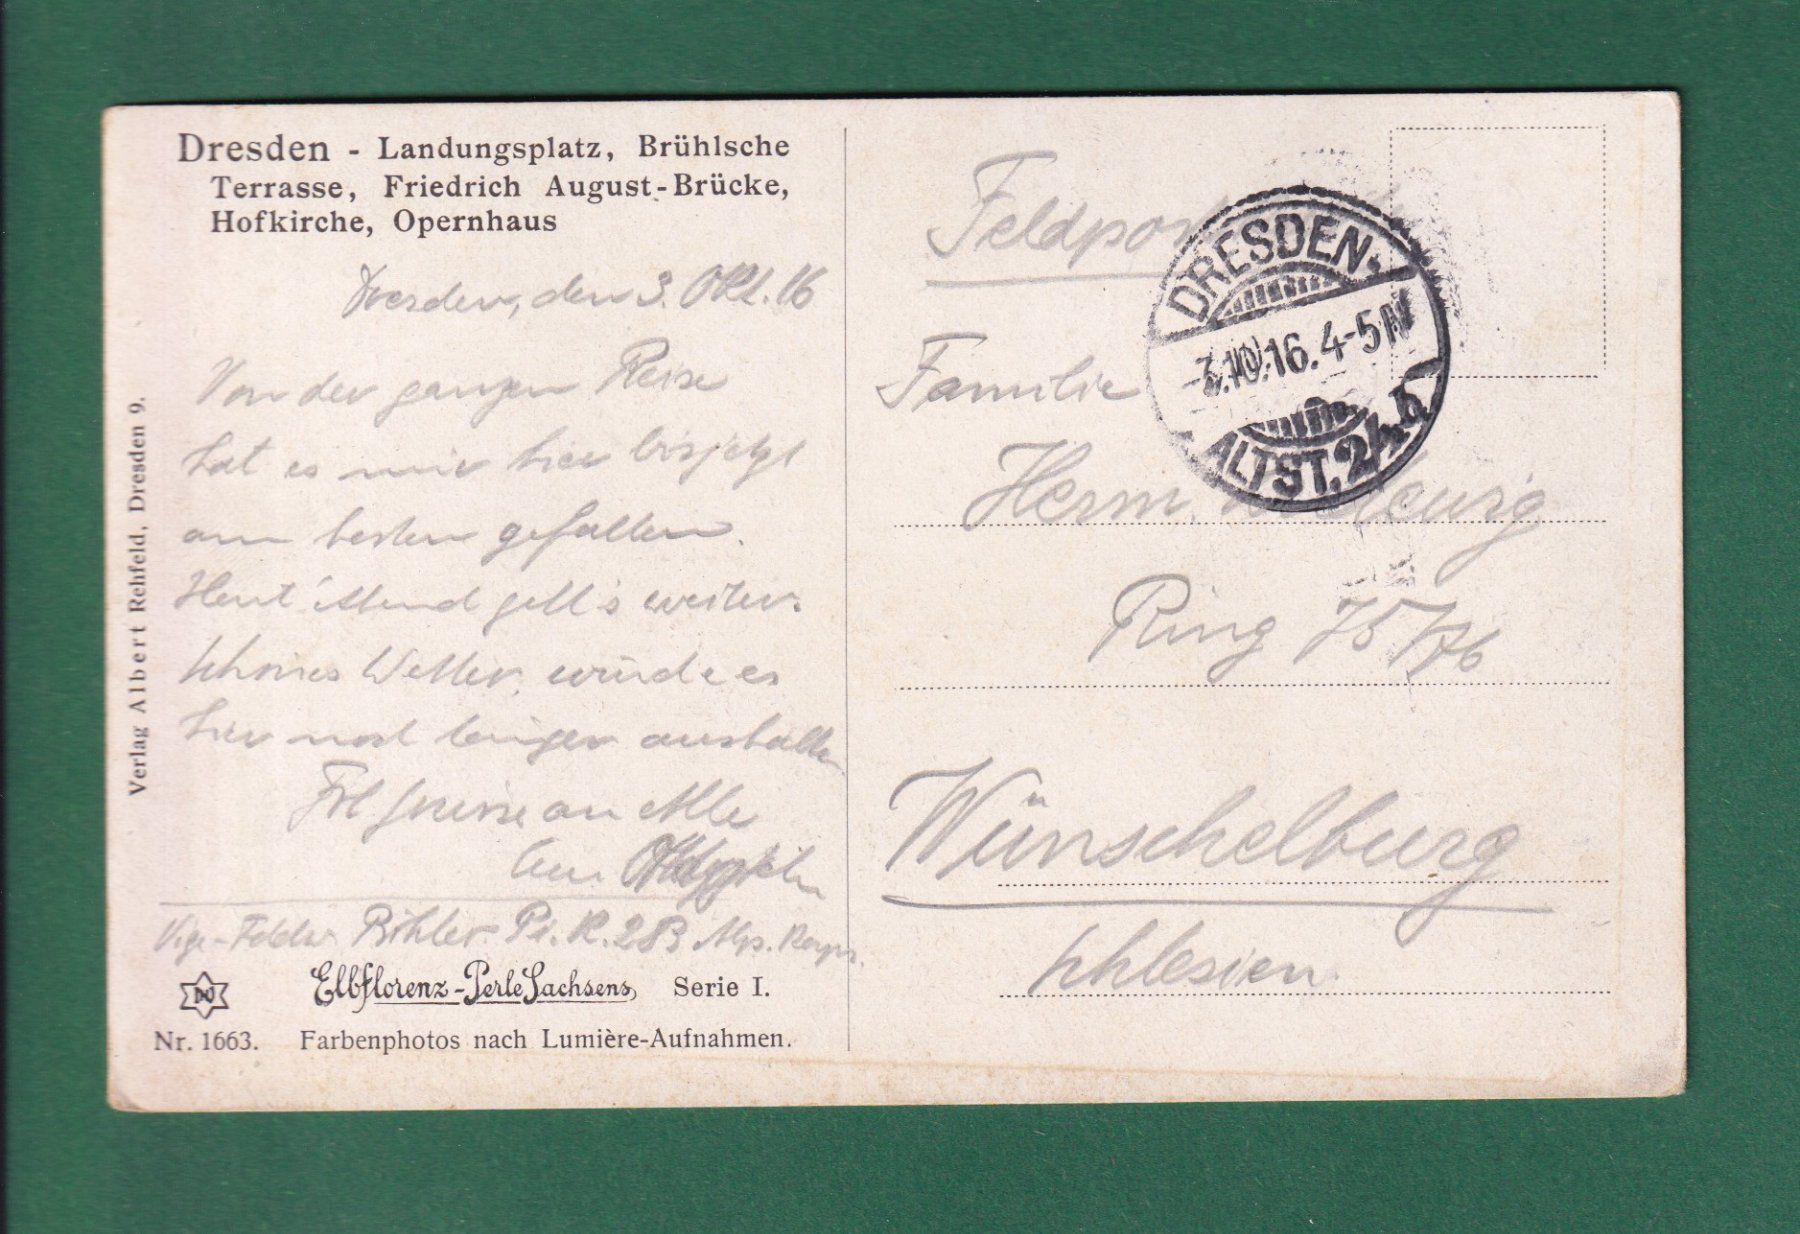 Dresden - Landungsplatz, Brühlsche
Terrasse, Friedrich August-Brücke,
Hofkirche, Opernhaus
Dresden, den 3. Okt. 16
Von der ganzen Reise
hat es mir hier bis jetzt
am besten gefallen.
Heut Abend geht's weiter.
Schönes Wetter, würde es
hier noch länger aushalten
Frl Grüsse an Alle
Euer
Vize-Feldw. P. R. 283
Elbflorenz-Perle Sachsens, Serie I.
Nr. 1663. Farbenphotos nach Lumière-Aufnahmen.
Verlag Albert Rehfeld, Dresden 9.
Feldpost
DRESDEN-
3.10.16. 4-5N
ALTST. 24
Familie
Herm.
Ring 75/76
Wünschelburg
Schlesien